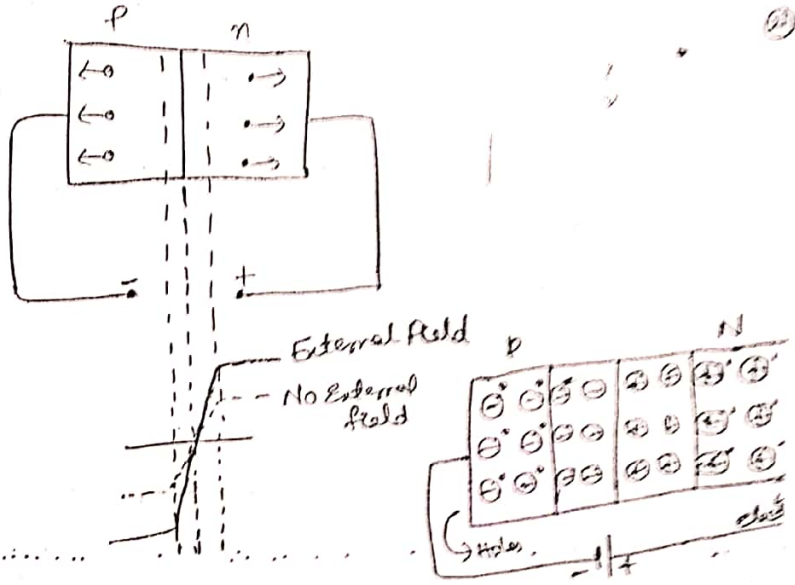 P n
- +
External field
No External
field
P N
Holes.
- +